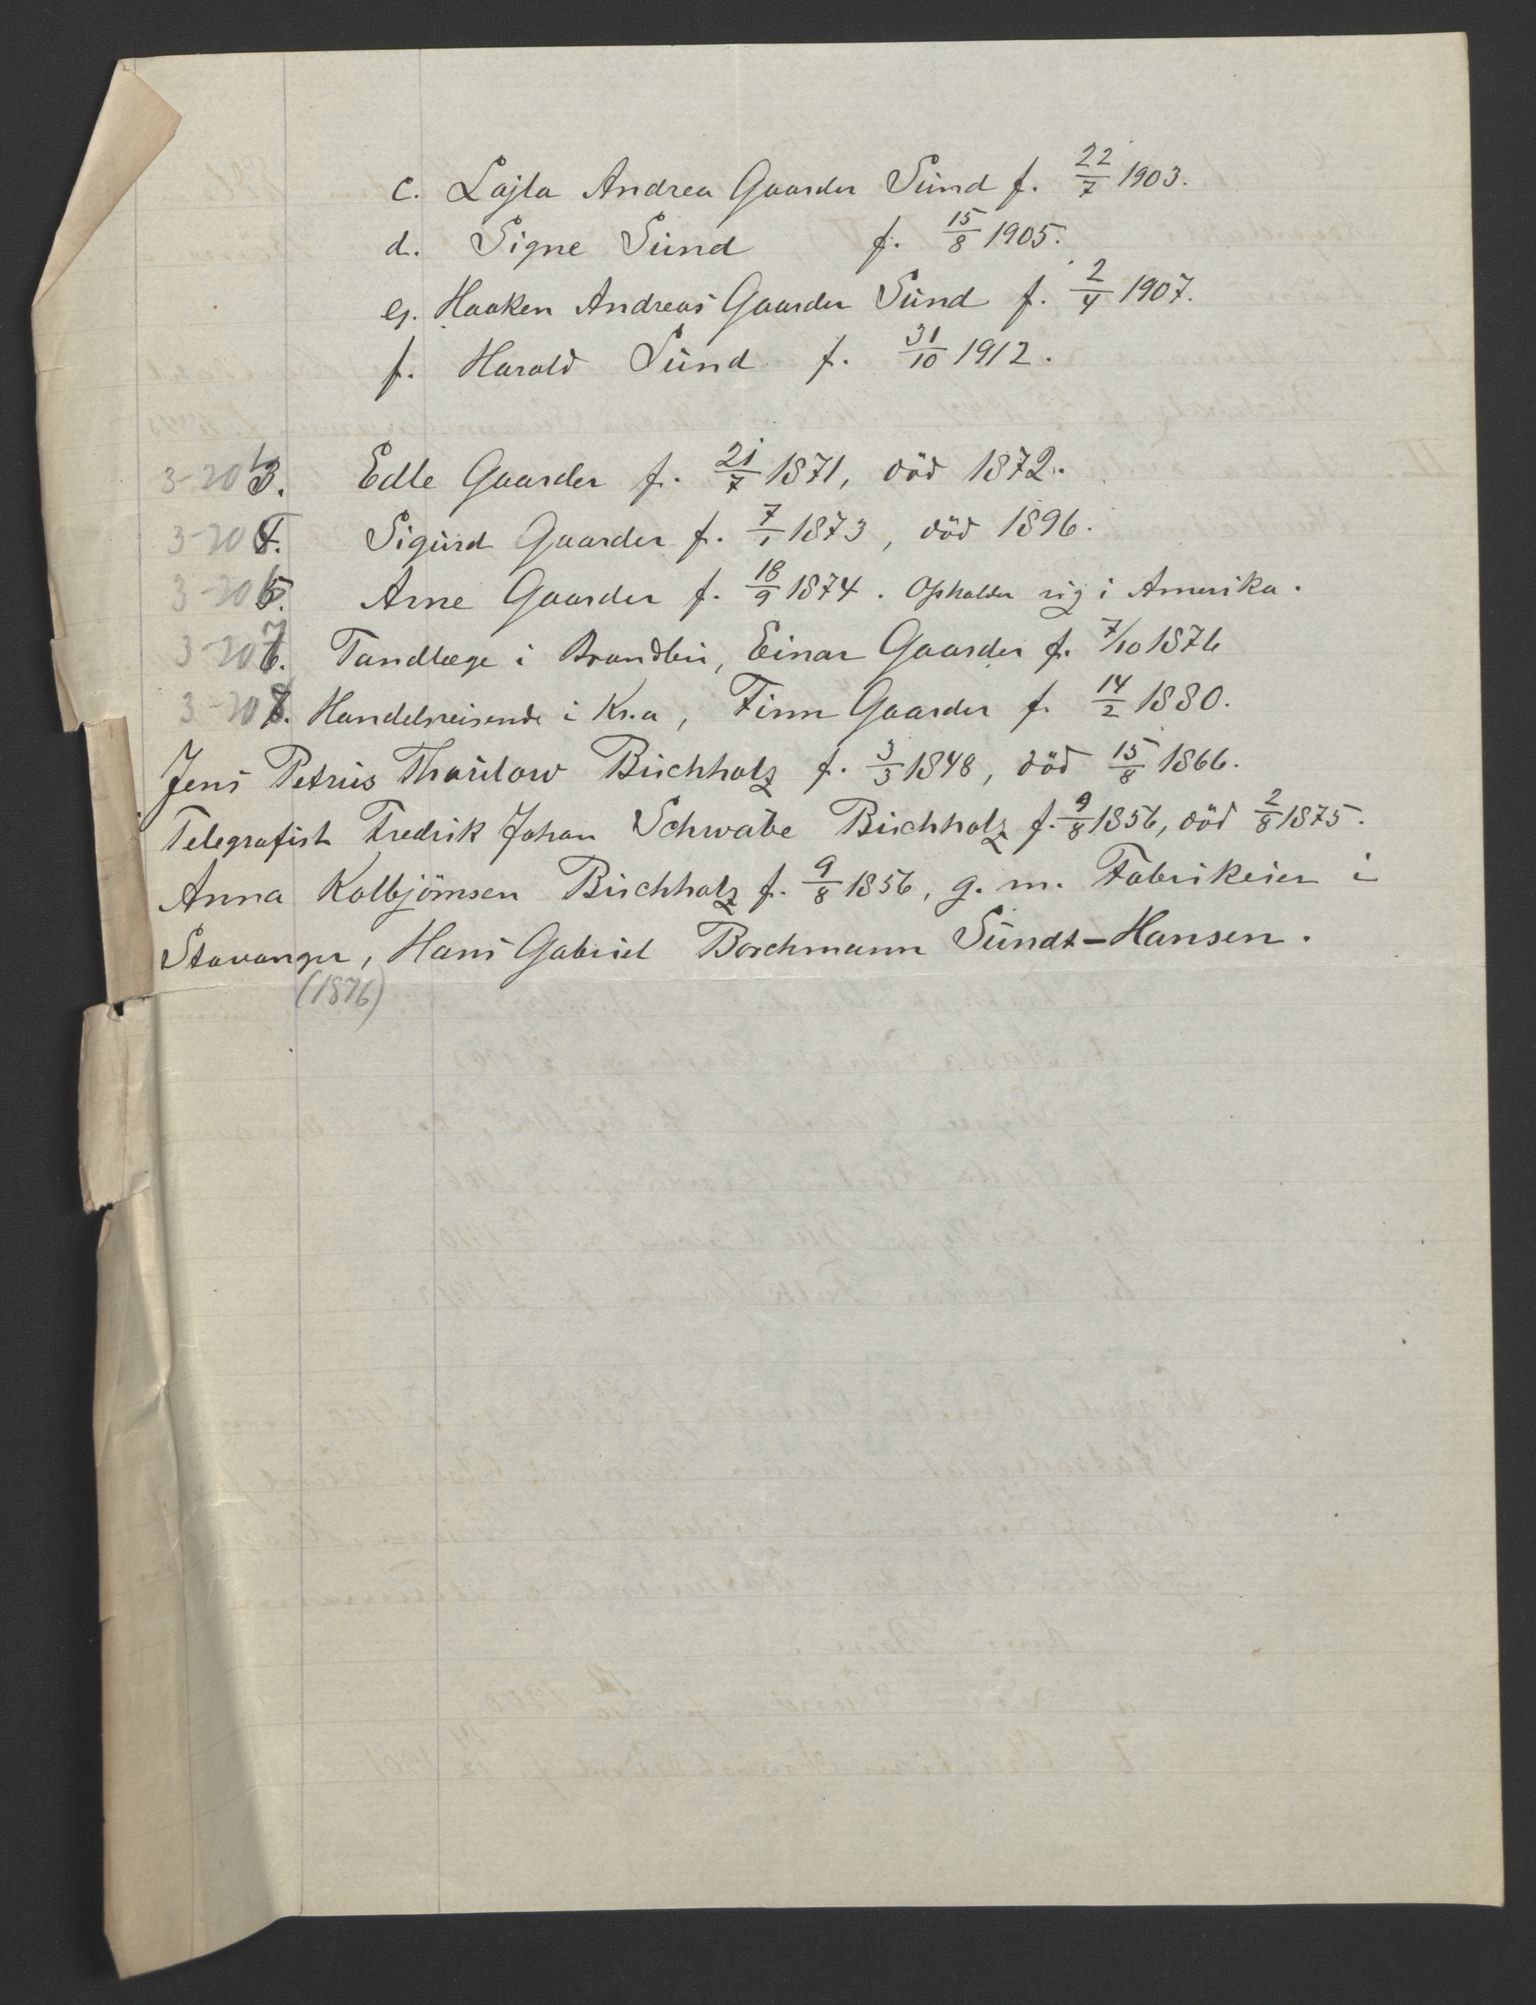 c. Lajla Andrea Gaarder Sund f. 22/7 1903.
d. Signe Sund f. 15/8 1905.
e. Haaken Andreas Gaarder Sund f. 2/4 1907.
f. Harald Sund f. 31/10 1912.
3-20 3. Edle Gaarder f. 21/7 1871, död 1872.
3-20 Sigurd Gaarder f. 7/1 1873, död 1896.
3-20 5. Arne Gaarder f. 18/9 1874. Opholder sig i Amerika.
3-20 6. Tandlæge i Brandbu, Einar Gaarder f. 7/10 1876
3-20 7. Handelsreisende i Kr.a, Finn Gaarder f. 14/2 1880.
Jens Petrus Thaulow Buchholz f. 3/3 1848, död 15/8 1866.
Telegrafist Fredrik Johan Schwabe Buchholz f. 9/8 1856, död 2/8 1875.
Anna Kolbjörnsen Buchholz f. 9/8 1856, g. m. Fabrikeier i
Stavanger, Hans Gabriel Borchmann Sundt-Hansen.
(1876)